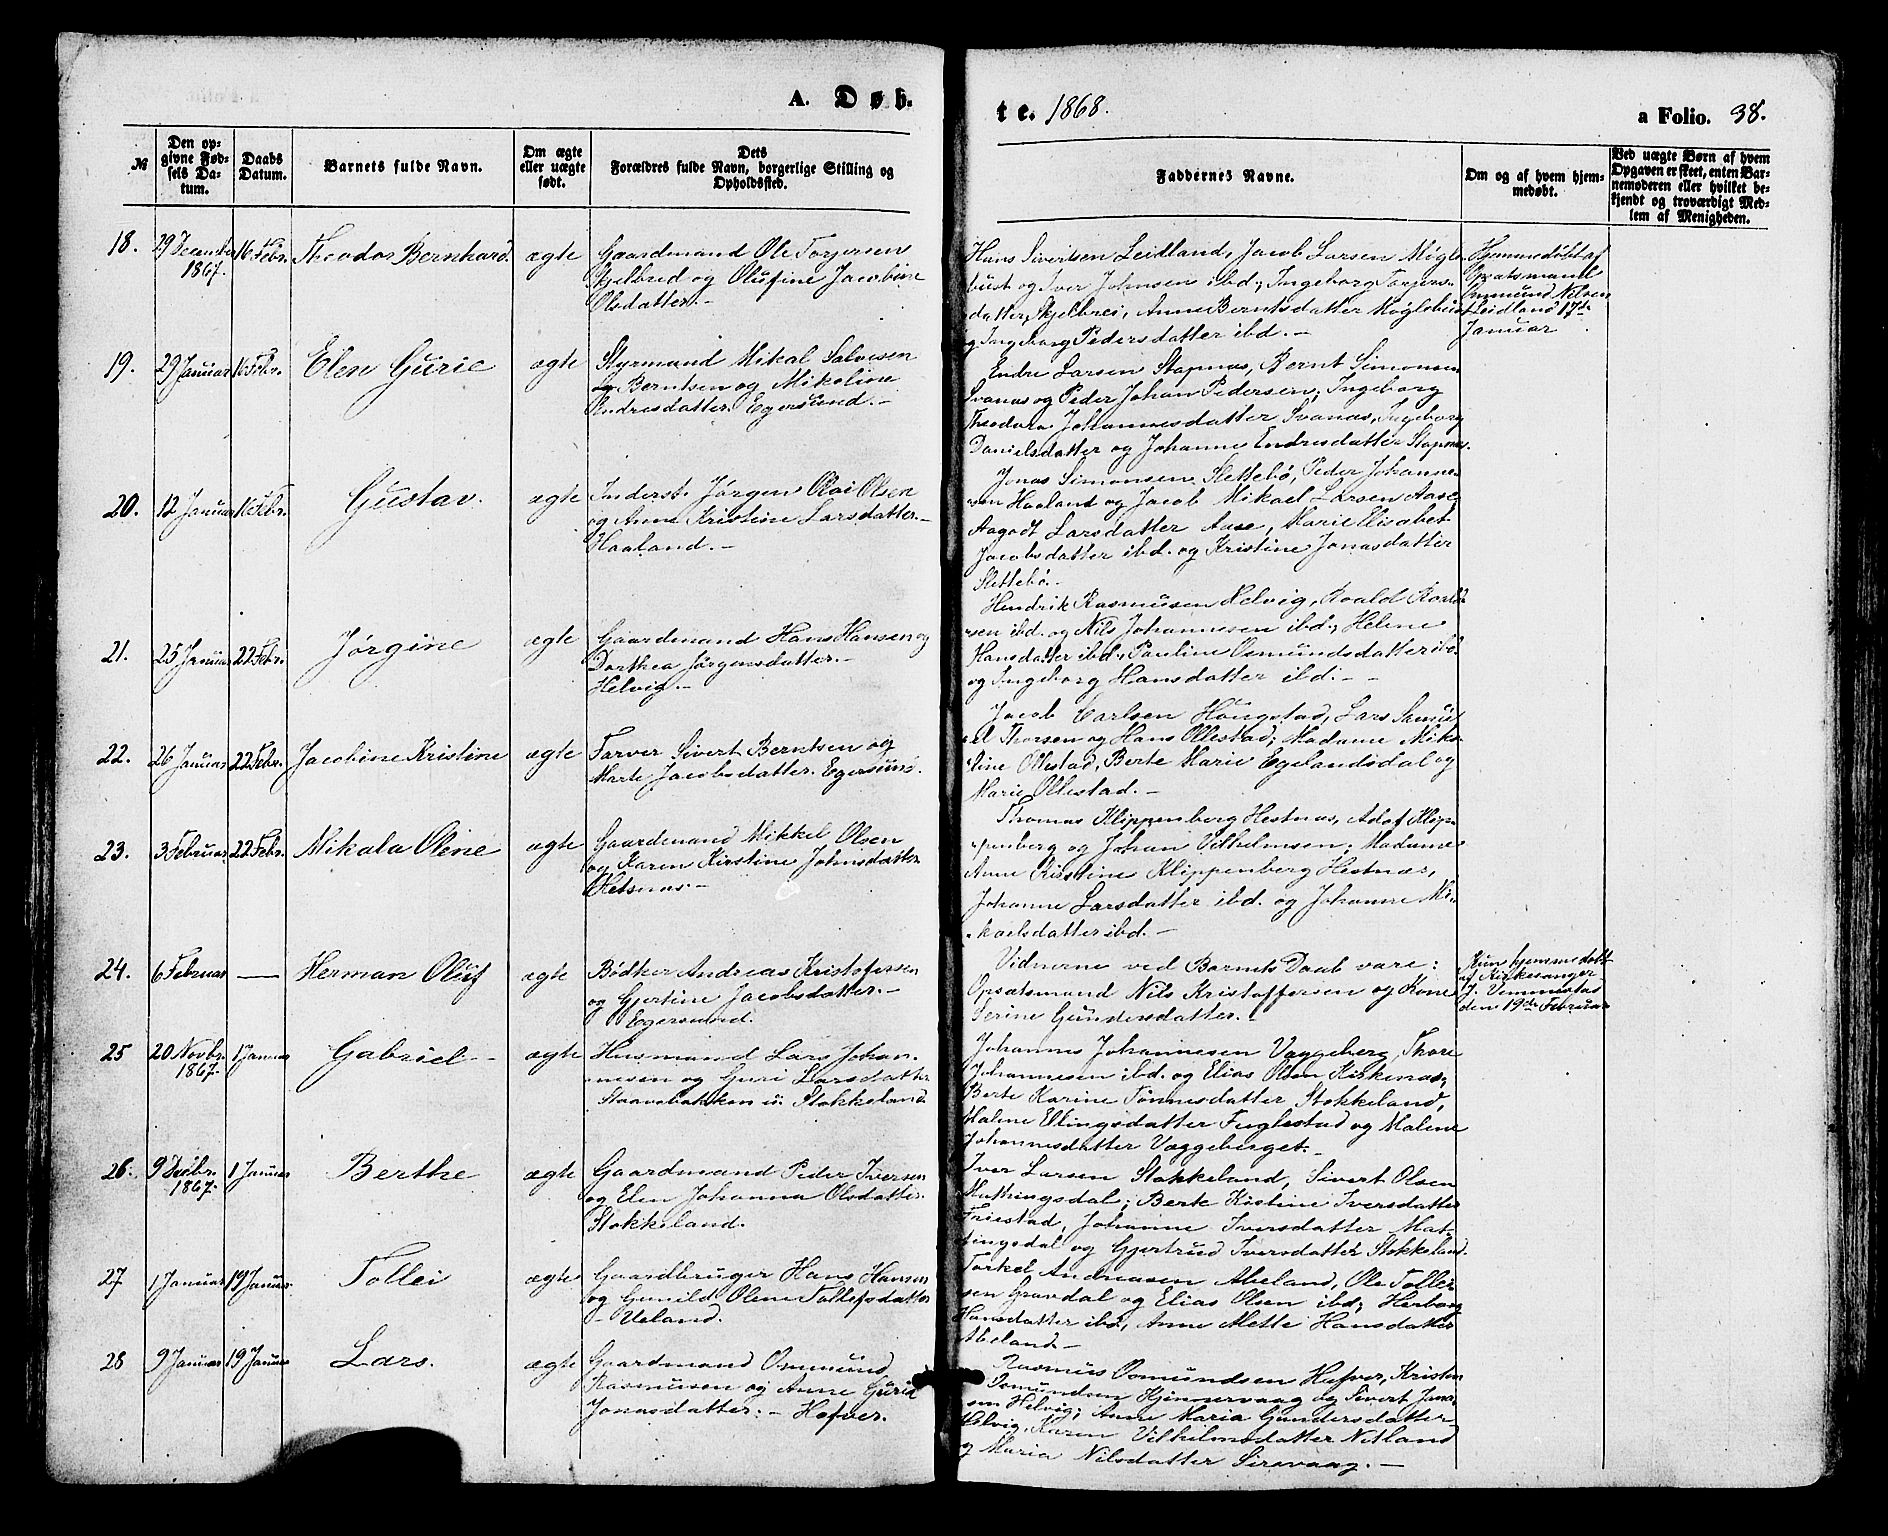 A. Døb.
te. 1868.
a Folio. 38.
№
Den op-
givne Fød-
sels Da-
tum.
Daabs
Datum.
Barnets fulde Navn.
Om ægte
eller uægte
født.
Dets
Forældres fulde Navn, borgerlige Stilling og
Opholdssted.
Faddernes Navne.
Om og af hvem hjem-
medøbt.
Ved uægte Børn af hvem
Opgaven er skeet, enten Bar-
nemoderen eller hvilket be-
kjendt og troværdigt Med-
lem af Menigheden.
18. 29 December 16 Febr. Theodor Bernhard. ægte Gaardmand Ole Torjersen
1867.
og Olufine Jacobine
Olsdatter.-
Hans Sivertsen Leidland, Jacob Larsen Møgle-
bust og Iver Johnsen ibd; Ingeborg Torjers-
datter, Skjelbrei, Anne Berntsdatter Møglebust
og Ingeborg Pedersdatter ibd. -
Hjemmedøbt af
Opsatsmand
Ommund Nilsen
Leidland 17de
Januar
19. 29 Januar 16 Febr. Elen Gurie ægte Styrmand Mikal Salvesen
Berntsen og Mikoline
Andreasdatter. Egersund.-
Endre Larsen Stapnæs, Bernt Simonsen
Svanæs og Peder Johan Pedersen; Ingeborg
Theodora Johannesdatter Svanæs, Ingeborg
Danielsdatter og Johanne Endresdatter Stapnæs.
20. 12 Januar 16 Febr. Gustav. ægte Inderst. Jørgen Olai Olsen
og Anne Kristine Larsdatter.-
Haaland.-
Jonas Simonsen Slettebø, Peder Johanne-
sen Haaland og Jacob Mikael Larsen Aase,
Aagodt Larsdatter Aase, Marie Elisabet
Jacobsdatter ibd. og Kristine Jonasdatter
Slettebø.-
21. 25 Januar 22 Febr. Jørgine ægte Gaardmand Hans Hansen og
Dorthea Jørgensdatter.-
Helvig.-
Hendrik Rasmusen Helvig, Roald Roald-
sen ibd. og Nils Johannesen ibd; Helene
Hansdatter ibd., Pauline Osmundsdatter ibd.
og Ingeborg Hansdatter ibd. - -
22. 26 Januar 22 Febr. Jacobine Kristine ægte Farver Sivert Berntsen og
Marte Jacobsdatter. Egersund.
Jacob Carlsen Haugstad, Lars Samu-
el Thorsen og Hans Ollestad; Madame Mika-
line Ollestad, Berte Marie Egelandsdal og
Marie Ollestad.-
23. 3 Februar 22 Febr. Mikala Oline ægte Gaardmand Mikkel Olsen
og Karen Kirstine Johnsdatter
Hetsnæs.-
Thomas Klippenberg Hestnæs, Adof Klip-
penberg og Johan Vilhelmsen; Madame
Anne Kristine Klippenberg Hestnæs,
Johanne Larsdatter ibd. og Johanne Mi-
kaelsdatter ibd.-
24. 6 Februar — Herman Oluf ægte Bødker Andreas Kristofersen
og Gjertine Jacobsdatter.-
Egersund.
Vidnerne ved Barnets Daab vare:
Opsatsmand Nils Kristoffersen og Kone
Serine Gundersdatter.-
Kun hjemmedøbt
af Kirkesanger
J. Vemmestad
den 19de Februar
25 20 Novbr. 1 Januar Gabriel- ægte Husmand Lars Johan-
1867.
nesen og Guri Larsdatter
Staavebakken u. Stokkeland
Johannes Johannesen Vaggeberg, Thore
Johannesen ibd. og Elias Olsen Kirkenæs;
Berte Karine Tønnesdatter Stokkeland,
Malene Ellingsdatter Fuglestad og Malene
Johannesdatter Vaggeberget.-
26. 9 Decbr. 1 Januar Berthe ægte Gaardmand Peder Iversen
1867.
og Elen Johanna Olsdatter.
Stokkeland.
Iver Larsen Stokkeland, Sivert Olsen
Mathingsdal; Berte Kristine Iversdatter
Friestad, Johanne Iversdatter Mat-
ingsdal og Gjertrud Iversdatter Stokkeland.
27 1 Januar 19 Januar Tollei ægte Gaardbruger Hans Hansen
og Gunild Olene Tollefsdatter
- Ueland.
Torkel Andreasen Abeland, Ole Tollei-
sen Gravdal og Elias Olsen ibd; Herborg
Hansdatter ibd, Anne Mette Hansdatter
Abeland.-
28 9 Januar 19 Januar Lars. ægte Gaardmand Ommund
Rasmusen og Anne Gurid
Jonasdatter.- Hafver.
Rasmus Osmundsen Hafver, Kristen
Osmundsen Kjinnervaag og Sivert Jona-
sen Helvig; Anne Maria Gundersdatter
Helvig, Karen Vilhelmsdatter Nitland
og Maria Nilsdatter Sirevaag.-